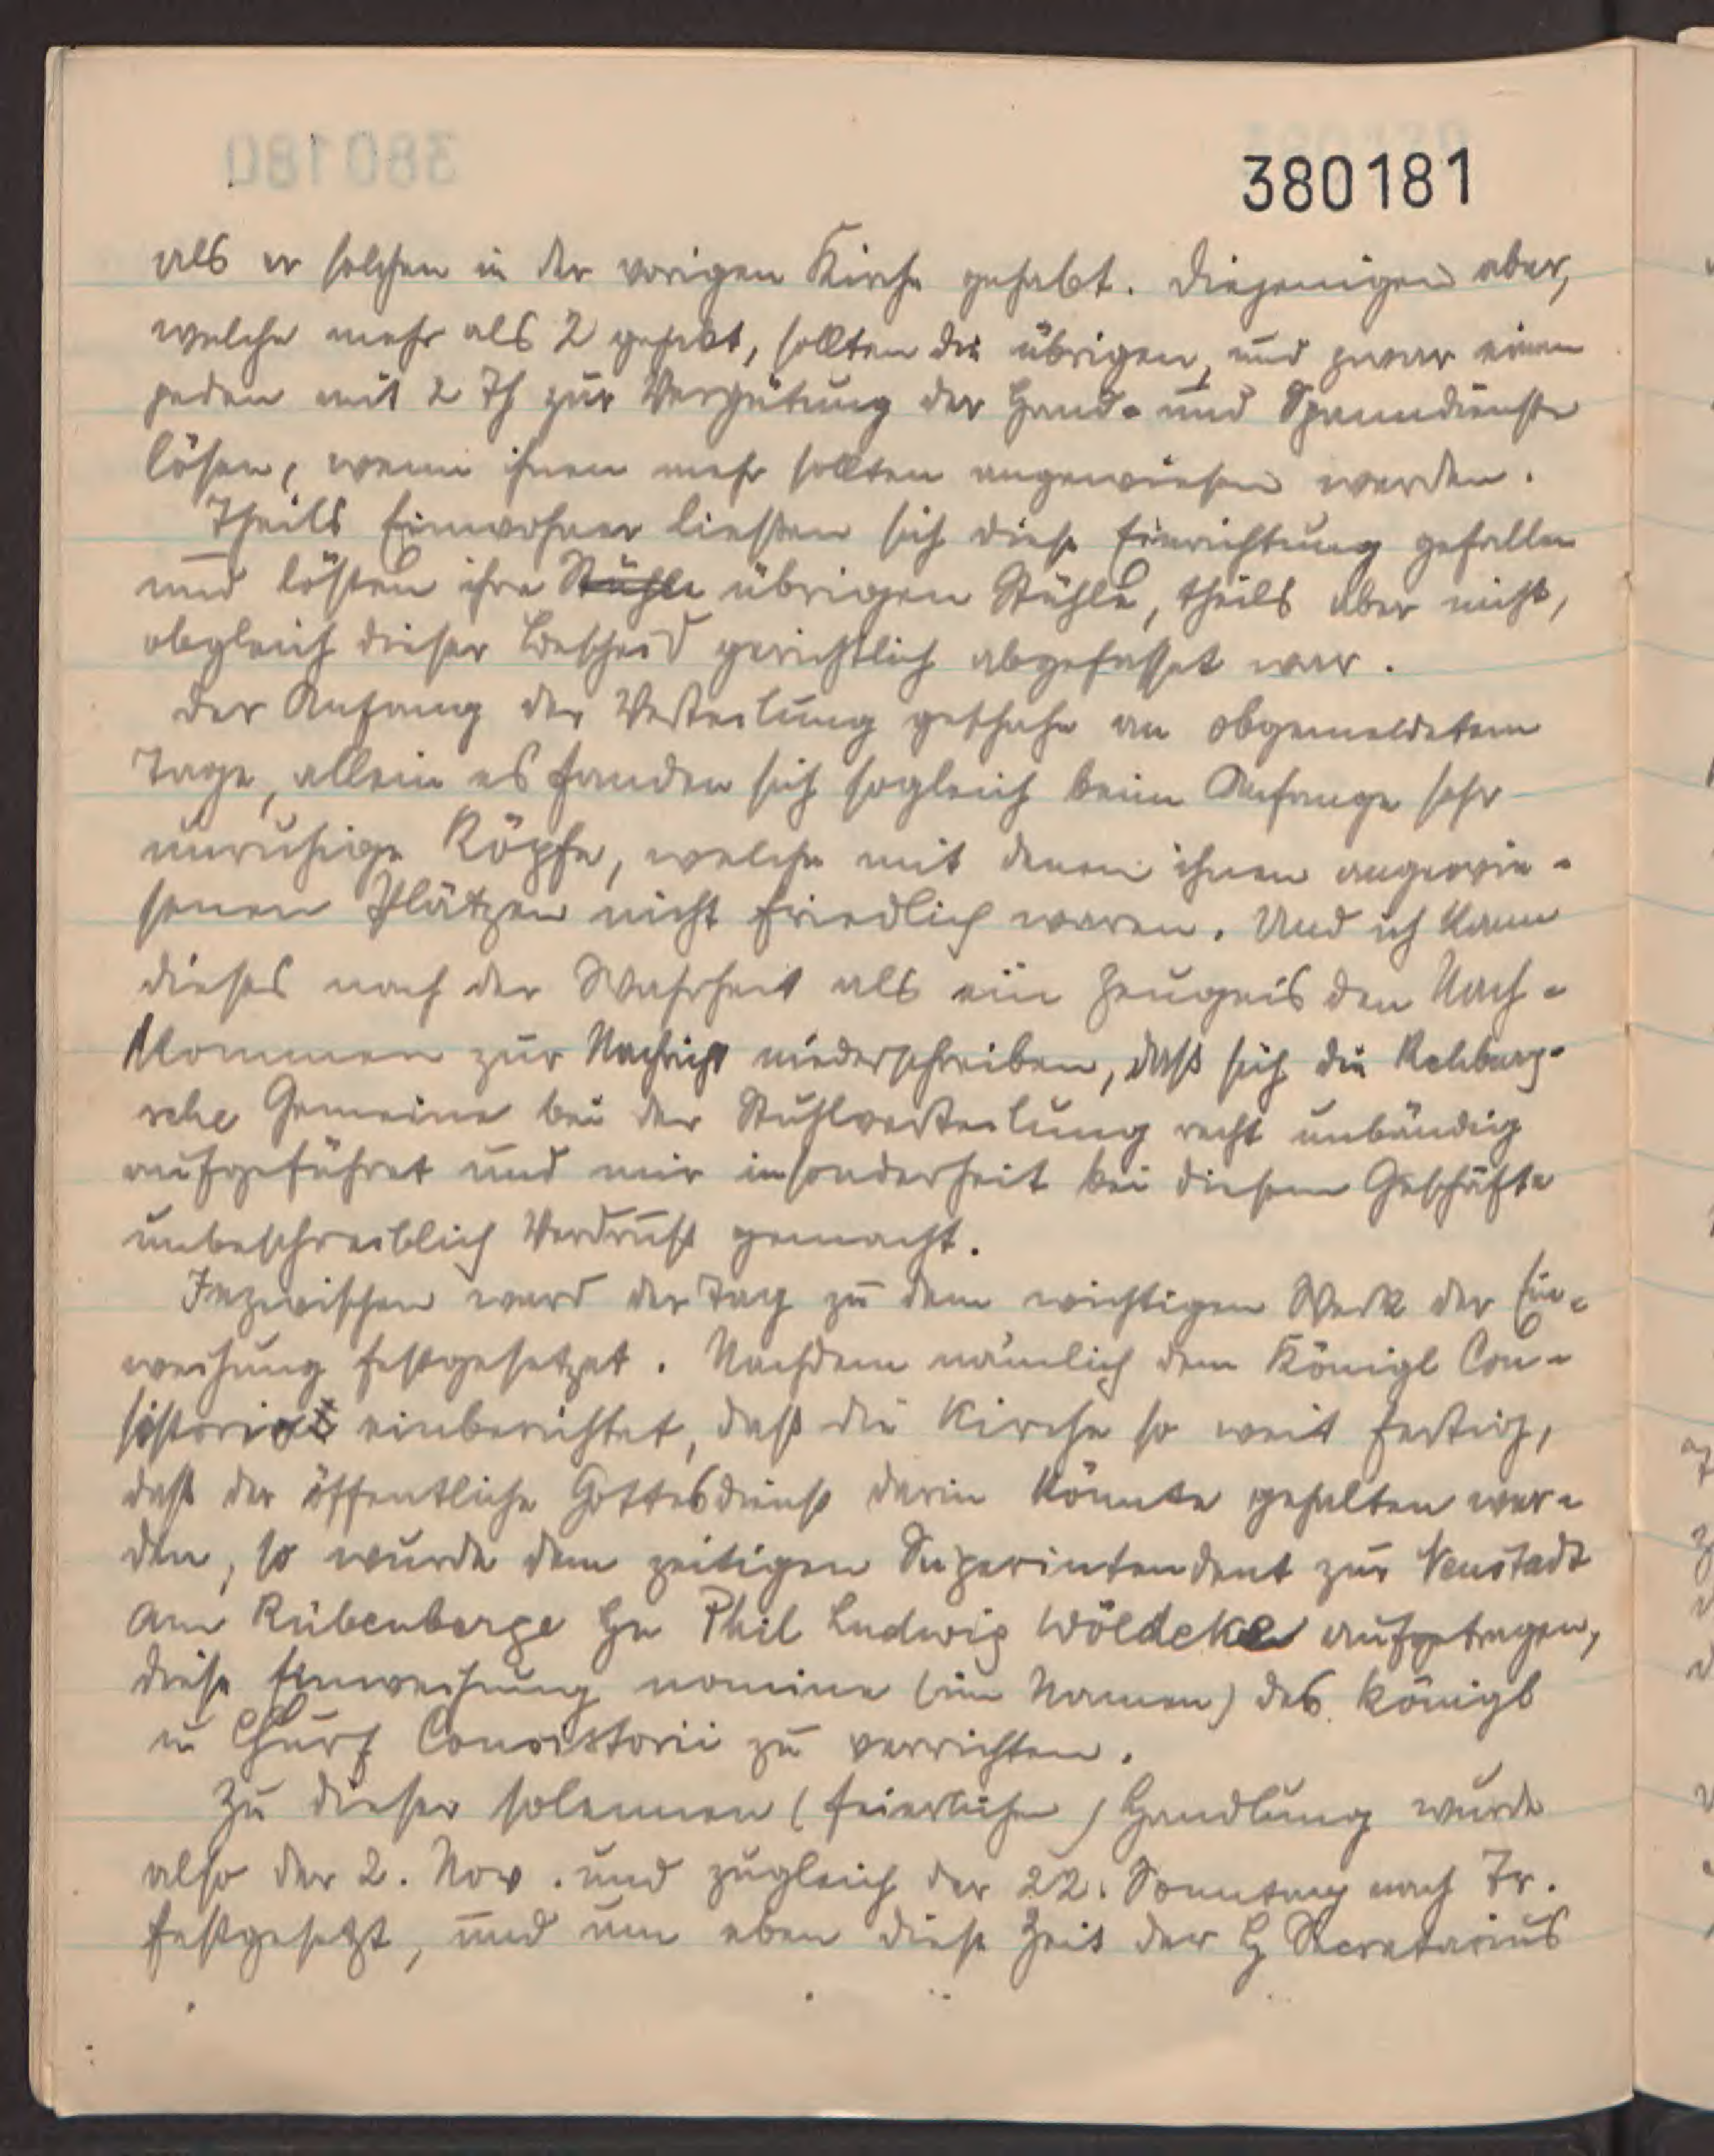 380181
als er solchen in der vorigen Kirche gehabt. Diejenigen aber,
welche mehr als 2 gehabt, sollten die übrigen, und zwar einen
jeden mit 2 Th zur Vergütung der Hand- und Spanndienste
lösen, wenn ihnen mehr sollten angewiesen werden.
Theils Einwohner liessen sich diese Einrichtung gefallen
und lösten ihre Stühle übrigen Stühle, theils aber nicht,
obgleich dieser Bescheid gerichtlich abgefasset war.
Der Anfang der Verteilung geschahe an obgemeldetem
Tage, allein es fanden sich sogleich beim Anfange sehr
unruhige Köpfe, welche mit denen ihnen angewie-
senen Plätzen nicht friedlich waren. Und ich kann
dieses nach der Wahrheit als ein Zeugnis den Nach-
kommen zur Nachricht niederschreiben, daß sich die Rehburg-
sche Gemeine bei der Stuhlverteilung recht unbändig
aufgeführet und mir insonderheit bei diesem Geschäfte
unbeschreiblich Verdruß gemacht.
Inzwischen ward der Tag zu dem wichtigen Werk der Ein-
weihung festgesetzet. Nachdem nämlich dem Königl Con-
sistorio einberichtet, daß die Kirche so weit fertig,
daß der öffentliche Gottesdienst darin könnte gehalten wer-
den, so wurde dem zeitigen Superintendent zur Neustadt
am Rübenberge Hn Phil Ludwig Wöldeke aufgetragen,
diese Einweihung nomine (im Namen) des Königl
u Churf Consistorii zu verrichten.
Zu dieser solennen (feierlichen) Handlung wurde
also der 2. Nov. und zugleich der 22. Sonntag nach Tr.
festgesetzt, und um eben diese Zeit der H Secretarius